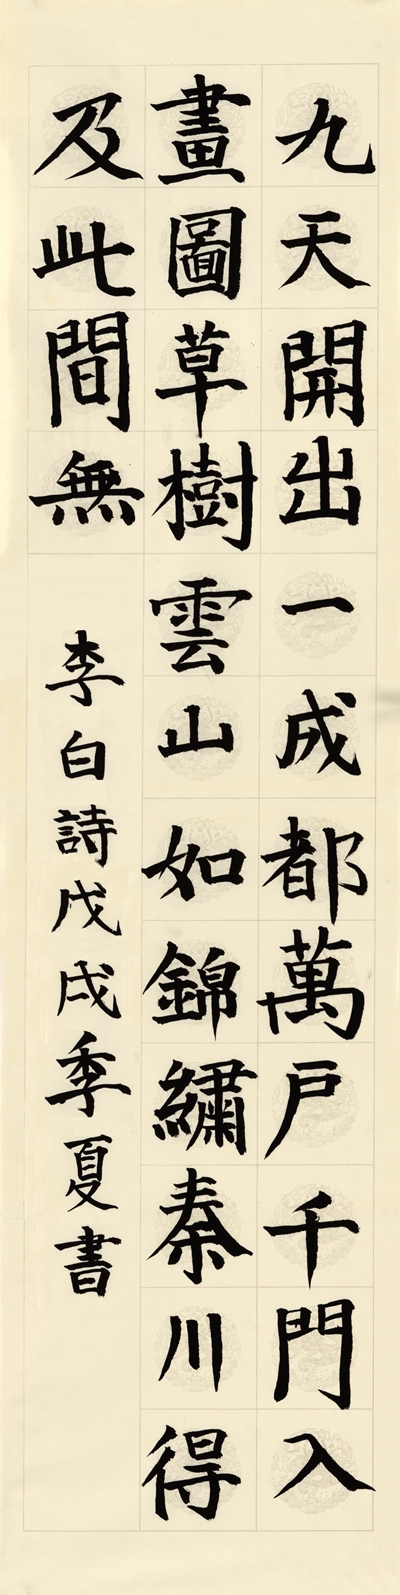 九天開出一成都萬戶千門入
畫圖草樹雲山如錦繡秦川得
及此間無
李白詩戊戌季夏書